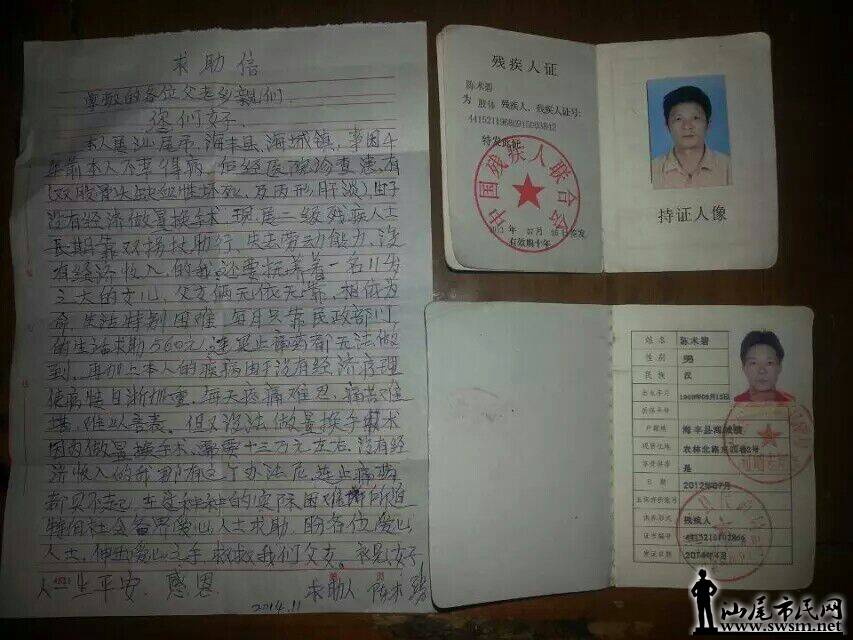 求助信
尊敬的各位父老乡亲们.
您们好
本人是汕尾市、海丰县、海城镇,事因4
年前本人不幸得病,但经医院诊查患有
(双股骨头缺血性坏死、及丙形肝淡),由于
没有经济做置换手术 现 是二级残疾人士
长期靠双拐扶助行,失去劳动能力、没
有经济收入,的我还要扶养着一名11岁
三大的女儿,父女俩无依无靠,相依为
命,生活特别困难,每月只靠民政部门
的生活求助560元,连买止痛药都无法做
到,再加上本人的疾病由于没有经济疗理
使病情日渐加重,每天疼痛难忍,痛苦难
堪,难以言表。但又没法做置换手术
因为做置换手术、需要十三万元左右、没有经
济收入的我那有这个办法呢,连止痛药
都买不起,在这种种的实际困难 所迫
特向社会各界爱心人士求助,盼各位爱心
人士,伸出爱心之手,救救我们父女。
人一生平安、感恩 求助人 陈术碧
2014.11
残疾人证
陈术碧
为 肢体 残疾人,残疾人证号:
特发此证
中国残疾人联合会
有效期十年
持证人像
姓名 陈术碧
性别 男
民族 汉
出生年月 1968年09月15日
户籍地 海丰县海城镇
现居住地
是
日期 2012年07月
残疾人
证书编号
发证日期 2014年4月
汕尾市民网
www.swsm.net